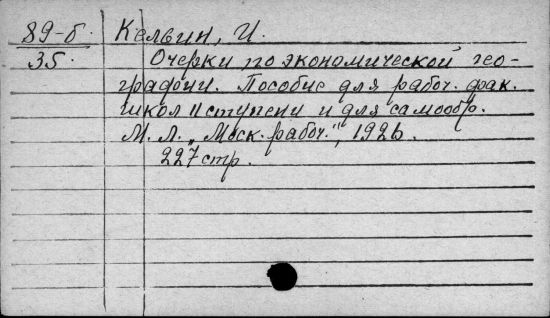 89-б. Келвин, И.
35. Очерки по экономической гео-
графии. Пособие для рабоч. фак.
школ II ступени и для самообр.
М. Л. „Моск. рабоч.", 1926.
227 стр.